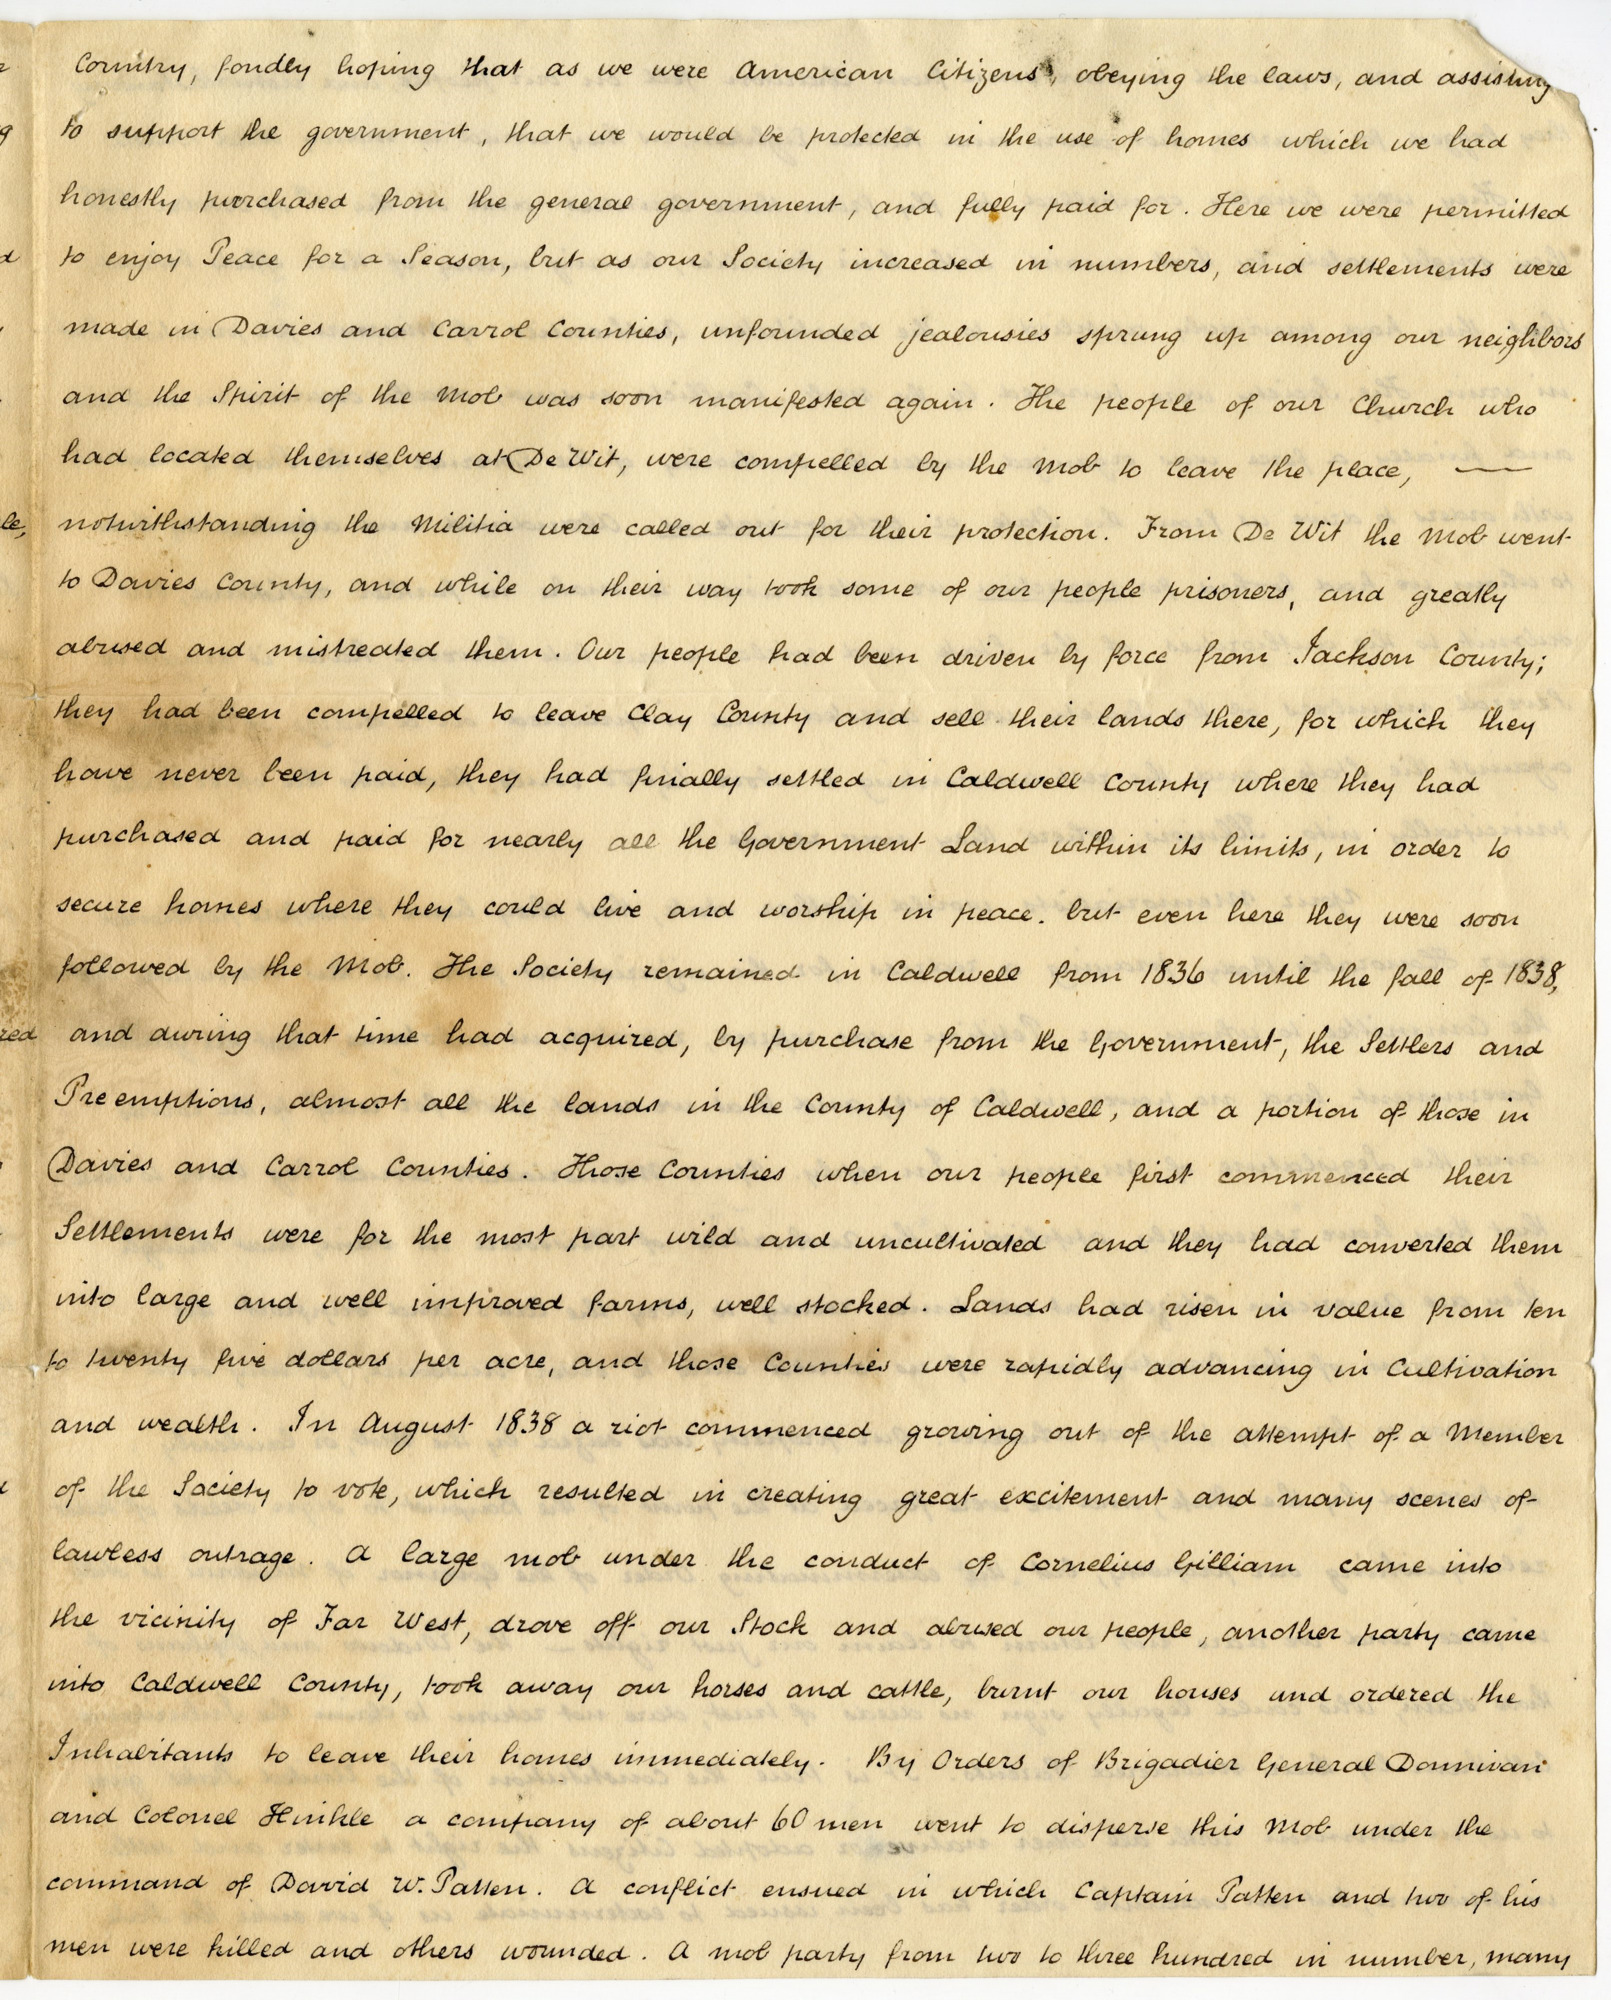 Country, fondly hoping that as we were American Citizens, obeying the laws, and assisting
to support the government, that we would be protected in the use of homes which we had
honestly purchased from the general government, and fully paid for. Here we were permitted
to enjoy Peace for a Season, but as our Society increased in numbers, and settlements were
made in Davies and Carrol Counties, unfounded jealousies sprung up among our neighbors
and the Spirit of the Mob was soon manifested again. The people of our Church who
had located themselves at De Wit, were compelled by the Mob to leave the place, —
notwithstanding the Militia were called out for their protection. From De Wit the Mob went
to Davies County, and while on their way took some of our people prisoners, and greatly
abused and mistreated them. Our people had been driven by force from Jackson County;
they had been compelled to leave Clay County and sell their lands there, for which they
have never been paid, they had finally settled in Caldwell County where they had
purchased and paid for nearly all the Government Land within its limits, in order to
secure homes where they could live and worship in peace. but even here they were soon
followed by the Mob. The Society remained in Caldwell from 1836 until the fall of 1838,
and during that time had acquired, by purchase from the Government, the Settlers and
Preemptions, almost all the lands in the County of Caldwell, and a portion of those in
Davies and Carrol Counties. Those Counties when our people first commenced their
Settlements were for the most part wild and uncultivated and they had converted them
into large and well improved farms, well stocked. Lands had risen in value from ten
to twenty five dollars per acre, and those Counties were rapidly advancing in Cultivation
and wealth. In August 1838 a riot commenced growing out of the attempt of a Member
of the Society to vote, which resulted in creating great excitement and many scenes of
lawless outrage. A large mob under the conduct of Cornelius Gilliam came into
the vicinity of Far West, drove off our Stock and abused our people, another party came
into Caldwell County, took away our horses and cattle, burnt our houses and ordered the
Inhabitants to leave their homes immediately. By Orders of Brigadier General Donnivan
and Colonel Hinkle a company of about 60 men went to disperse this Mob under the
command of David W. Patten. A conflict ensued in which Captain Patten and two of his
men were killed and others wounded. A mob party from two to three hundred in number, many